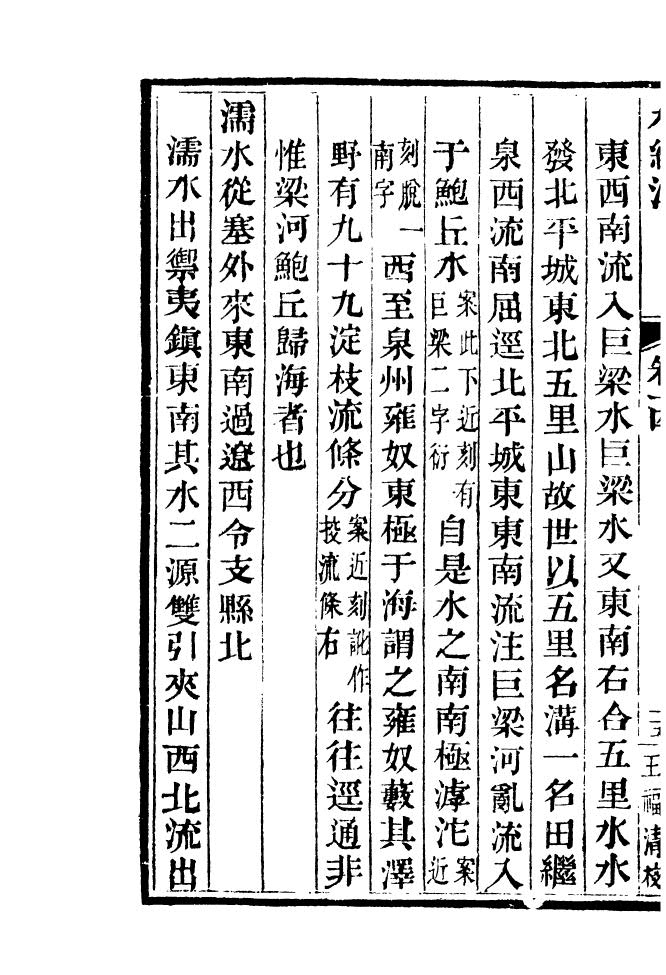 東西南流入巨梁水巨梁水又東南右合五里水水
發北平城東北五里山故世以五里名溝一名田繼
泉西流南屈逕北平城東東南流注巨梁河亂流入
于鮑丘水案此下近刻有巨梁二字衍自是水之南南極滹沱案近
刻脫一南字西至泉州雍奴東極于海謂之雍奴藪其澤
野有九十九淀枝流條分案近刻訛作枝流條右往往逕通非
惟梁河鮑丘歸海者也
濡水從塞外來東南過遼西令支縣北
濡水出禦夷鎮東南其水二源雙引夾山西北流出